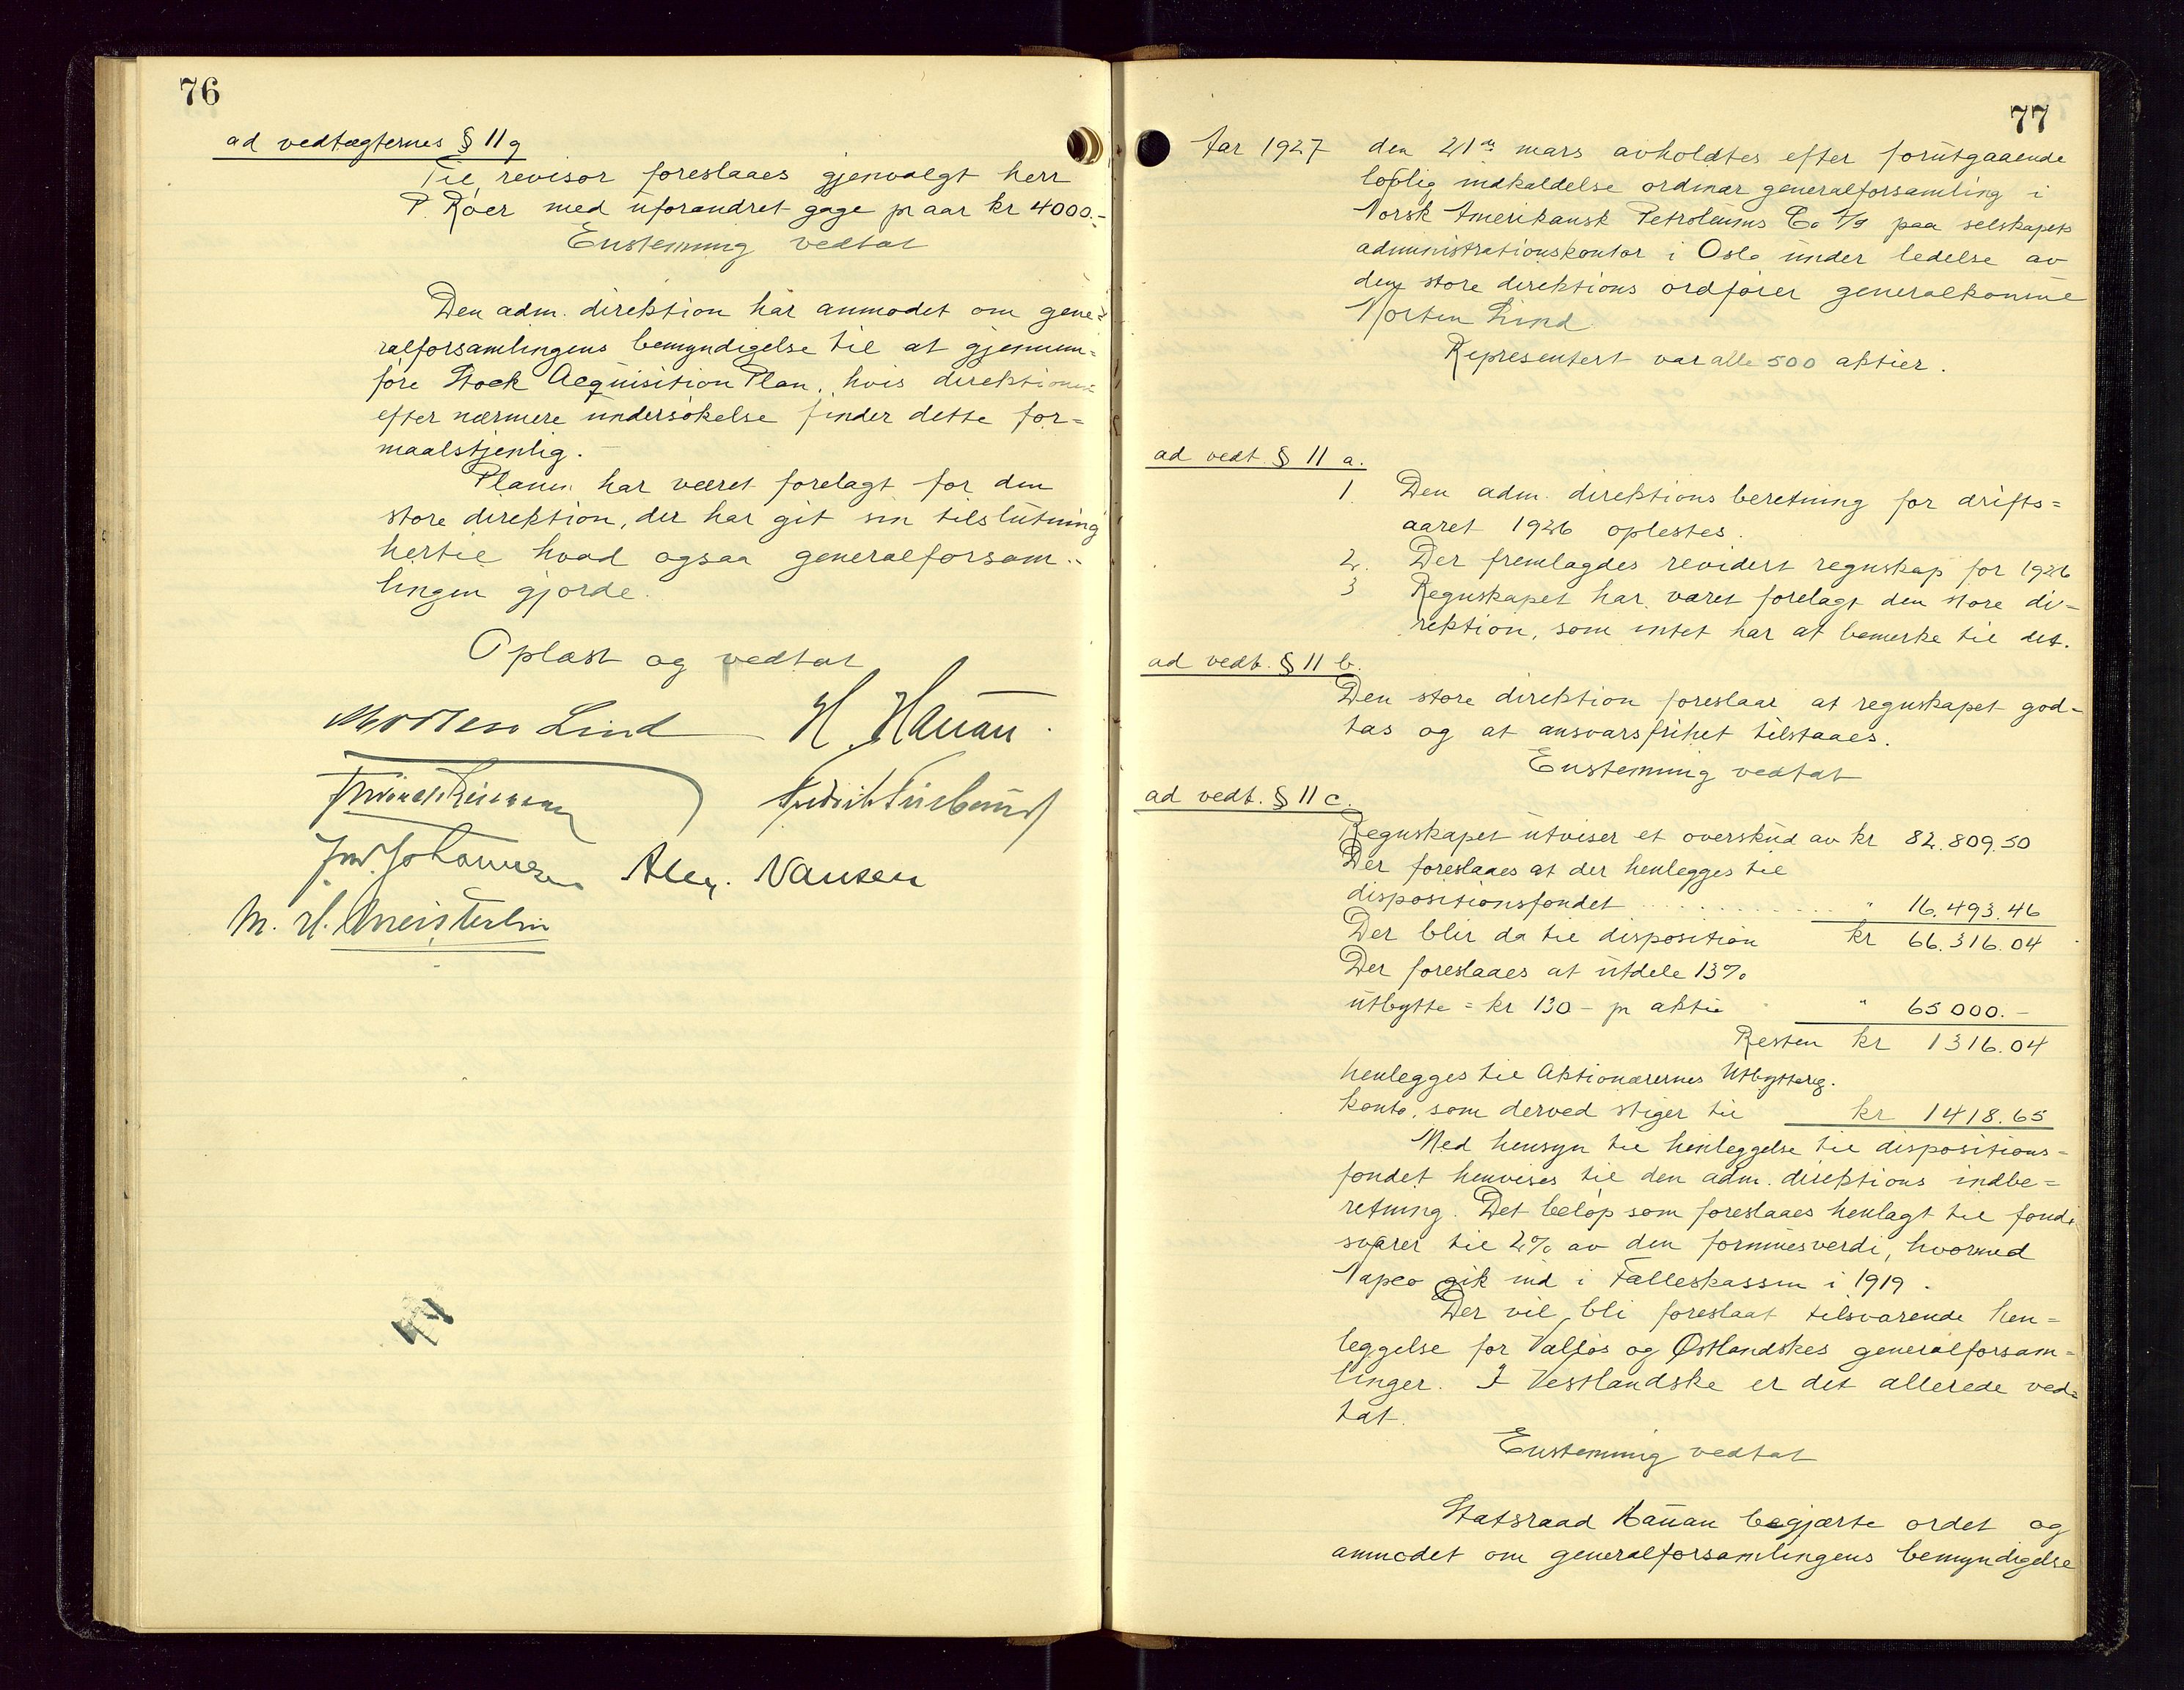 76
ad vedtægternes § 11 g
Til revisor foreslaaes gjenvalgt herr
P. Röer med uforandret gage pr aar kr 4000.-
Enstemmig vedtat
Den adm. direktion har anmodet om gene=
ralforsamlingens bemyndigelse til at gjennem=
føre Stock Acquisition Plan, hvis direktionen
efter nærmere undersøkelse finder dette for=
maalstjenlig.
Planen har været forelagt for den
store direktion, der har git sin tilslutning
hertil hvad ogsaa generalforsam=
lingen gjorde.
Oplæst og vedtat
Morten Lind H. Hauan
Johannesen Alex. Nansen
M. H. Meisterlin
77
Aar 1927 den 21de mars avholdtes efter forutgaaende
lovlig indkaldelse ordinær generalforsamling i
Norsk Amerikansk Petroleums Co A/S paa selskapets
administrationskontor i Oslo under ledelse av
den store direktions ordfører generalkonsul
Morten Lind
Representert var alle 500 aktier.
ad vedt. § 11 a.
1. Den adm. direktions beretning for drifts=
aaret 1926 oplestes.
2. Der fremlagdes revidert regnskap for 1926
3 Regnskapet har været forelagt den store di-
rektion, som intet har at bemerke til det.
ad vedt. § 11 b.
Den store direktion foreslaar at regnskapet god=
tas og at ansvarsfrihet tilstaaes.
Enstemmig vedtat
ad vedt. § 11 c.
Regnskapet utviser et overskud av kr 82.809.50
Der foreslaaes at der henlegges til
dispositionsfondet " 16.493.46
Der blir da til disposition kr 66.316.04
Der foreslaaes at utdele 13%
utbytte = kr 130 - pr aktie " 65000.-
Resten kr 1316.04
henlegges til Aktionærernes Utbytterg.
konto, som derved stiger til kr 1418.65
Med hensyn til henleggelse til dispositions=
fondet henvises til den adm. direktions indbe=
retning. Det beløp som foreslaaes henlagt til fondet
svarer til 2% av den formuesverdi, hvormed
Napco gik ind i Fælleskassen i 1919.
Der vil bli foreslaat tilsvarende hen=
leggelse for Valløs og Østlandskes generalforsam=
linger. I Vestlandske er det allerede ved=
tat.
Enstemmig vedtat
Statsraad Hauan begjærte ordet og
anmodet om generalforsamlingens bemyndigelse